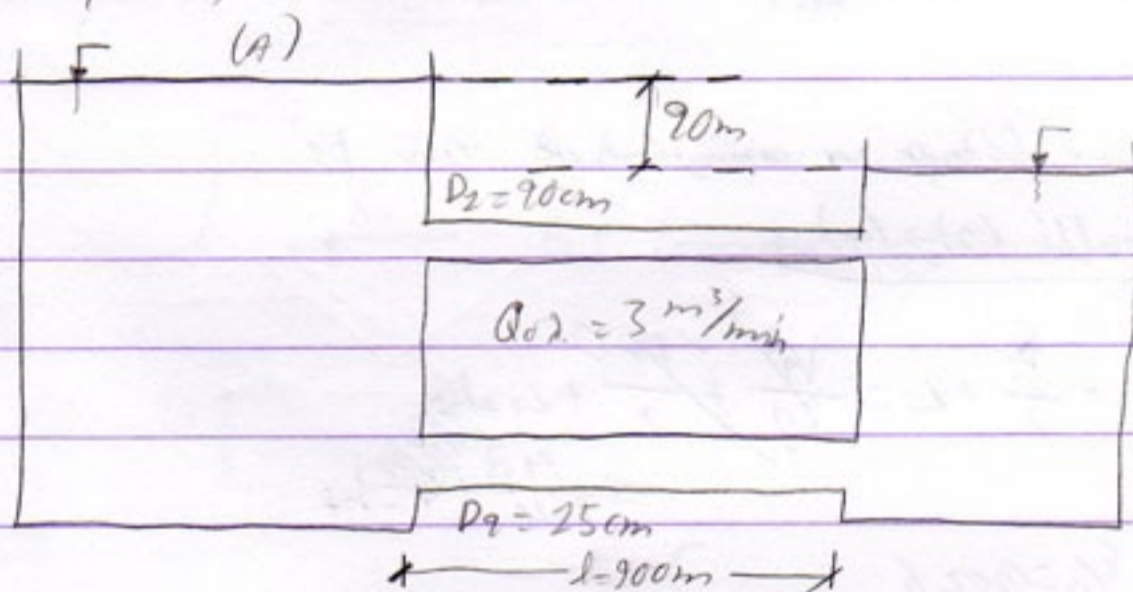 (A)
90m
D₂ = 90cm
Qολ = 3 m³/min
D9 = 25cm
l=900m